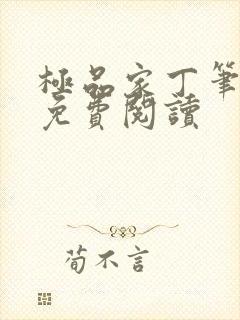 極品家丁筆
免費閱讀
荀不言